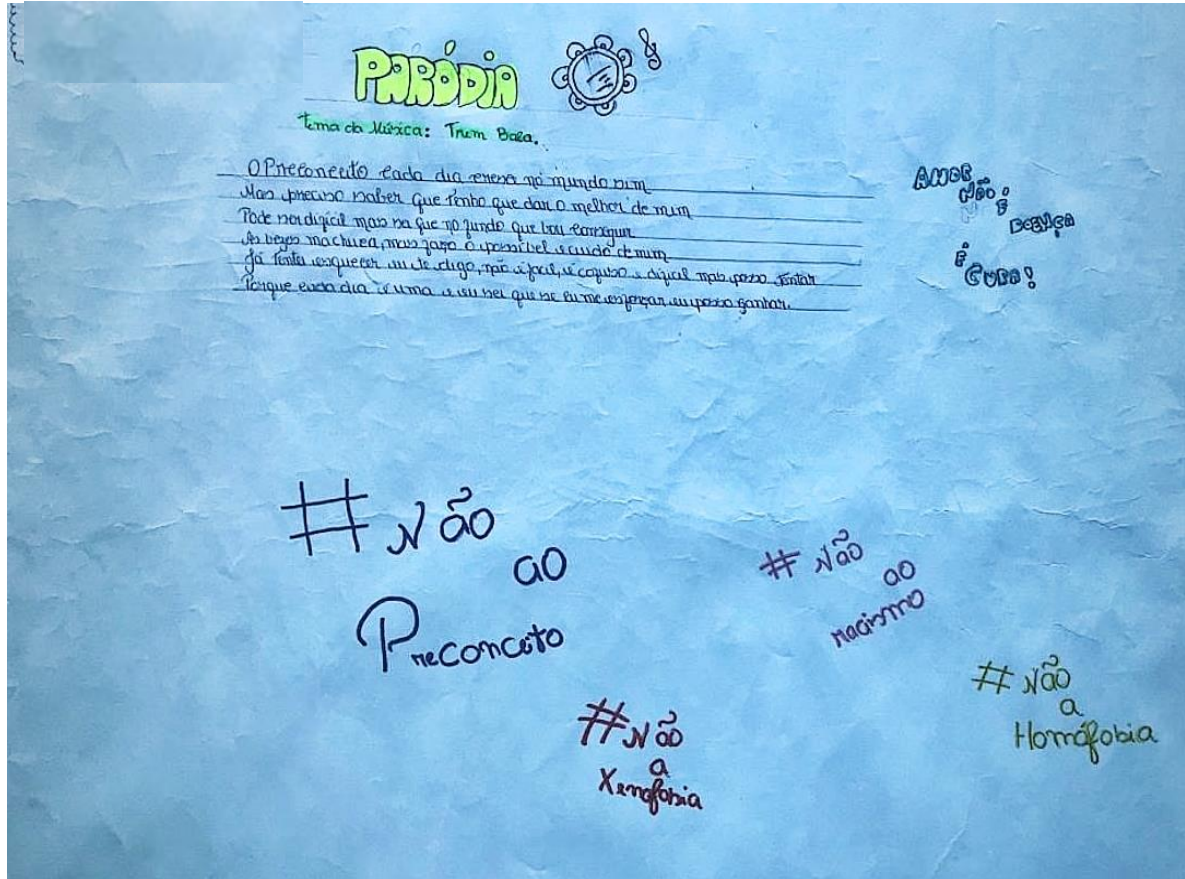 PARÓDIA
Tema da Música: Trem Bala.
O Preconceito cada dia cresce no mundo sim
Mas preciso saber que tenho que dar o melhor de mim
Pode ser difícil mas sa que no fundo que vou conseguir
As vezes machuca, mas faço o possível e cuido de mim
Já tentei esquecer eu te digo, não é fácil, é confuso e difícil mas posso tentar
Porque cada dia é uma e eu sei que se eu me esforçar eu posso ganhar
AMOR
NÃO
É
DOENÇA
É
CURA!
# Não
ao
Preconceito
# Não
ao
racismo
# Não
a
Xenofobia
# Não
a
Homófobia